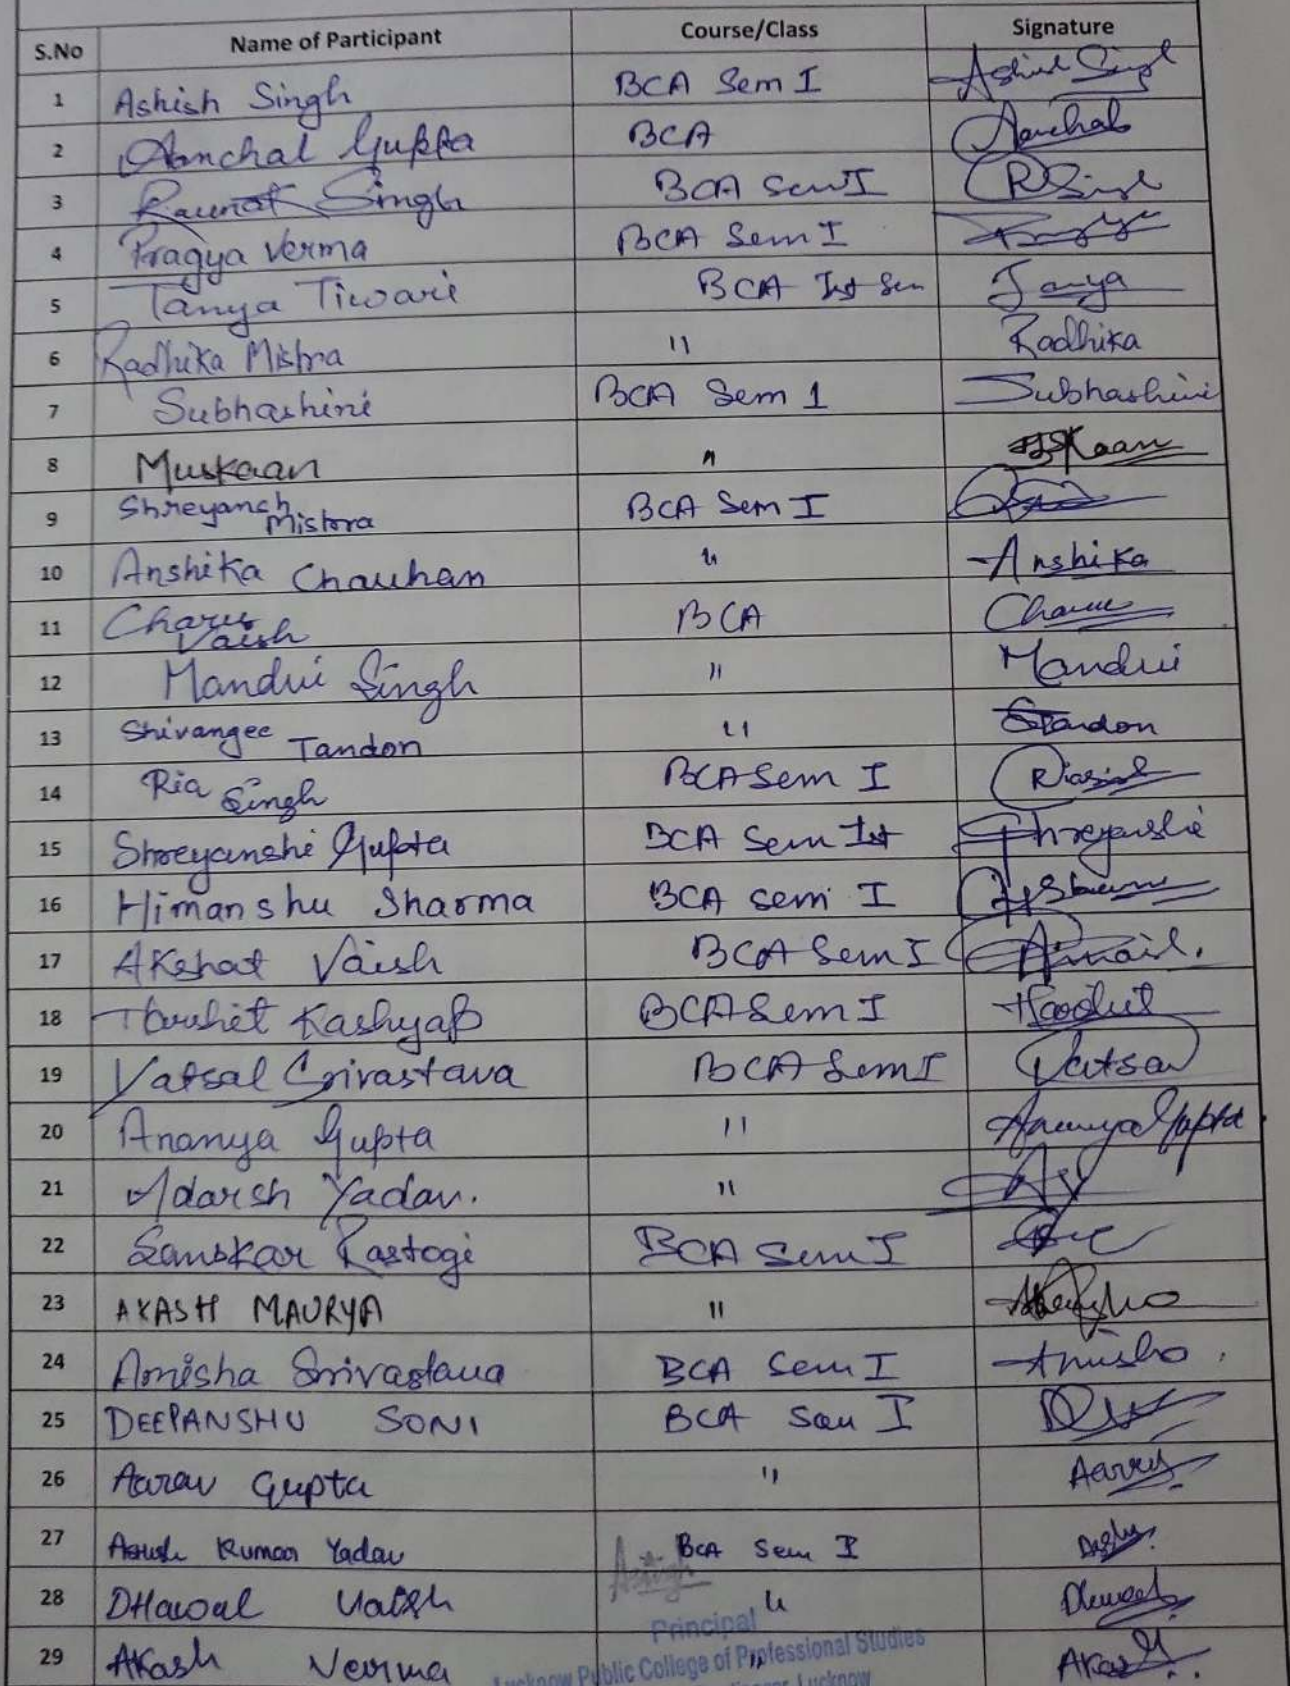 S.No Name of Participant Course/Class Signature
1 Ashish Singh BCA Sem I Ashish Singh
2 Aanchal Gupta BCA Aanchal
3 Raunak Singh BCA Sem I RSingh
4 Pragya Verma BCA Sem I
5 Tanya Tiwari BCA Ist Sem Tanya
6 Radhika Mishra " Radhika
7 Subhashini BCA Sem 1 Subhashini
8 Muskaan "
9 Shreyansh Mishra BCA Sem I
10 Anshika Chauhan " Anshika
11 Charu Vaish BCA Charu
12 Mandvi Singh " Mandvi
13 Shivangee Tandon " STandon
14 Ria Singh BCA Sem I
15 Shreyanshi Gupta BCA Sem Ist Shreyanshi
16 Himanshu Sharma BCA Sem I
17 Akshat Vaish BCA Sem I
18 Harshit Kashyap BCA Sem I Harshit
19 Vatsal Srivastava BCA Sem I Vatsal
20 Ananya Gupta " Ananya Gupta
21 Adarsh Yadav. "
22 Sanskar Rastogi BCA Sem I
23 AKASH MAURYA "
24 Amisha Srivastava BCA Sem I Amisha
25 DEEPANSHU SONI BCA Sem I
26 Aarav Gupta "
27 Kumar Yadav BCA Sem I
28 DHawal Vaish "
29 Akash Verma "
Principal
Lucknow Public College of Professional Studies
Lucknow